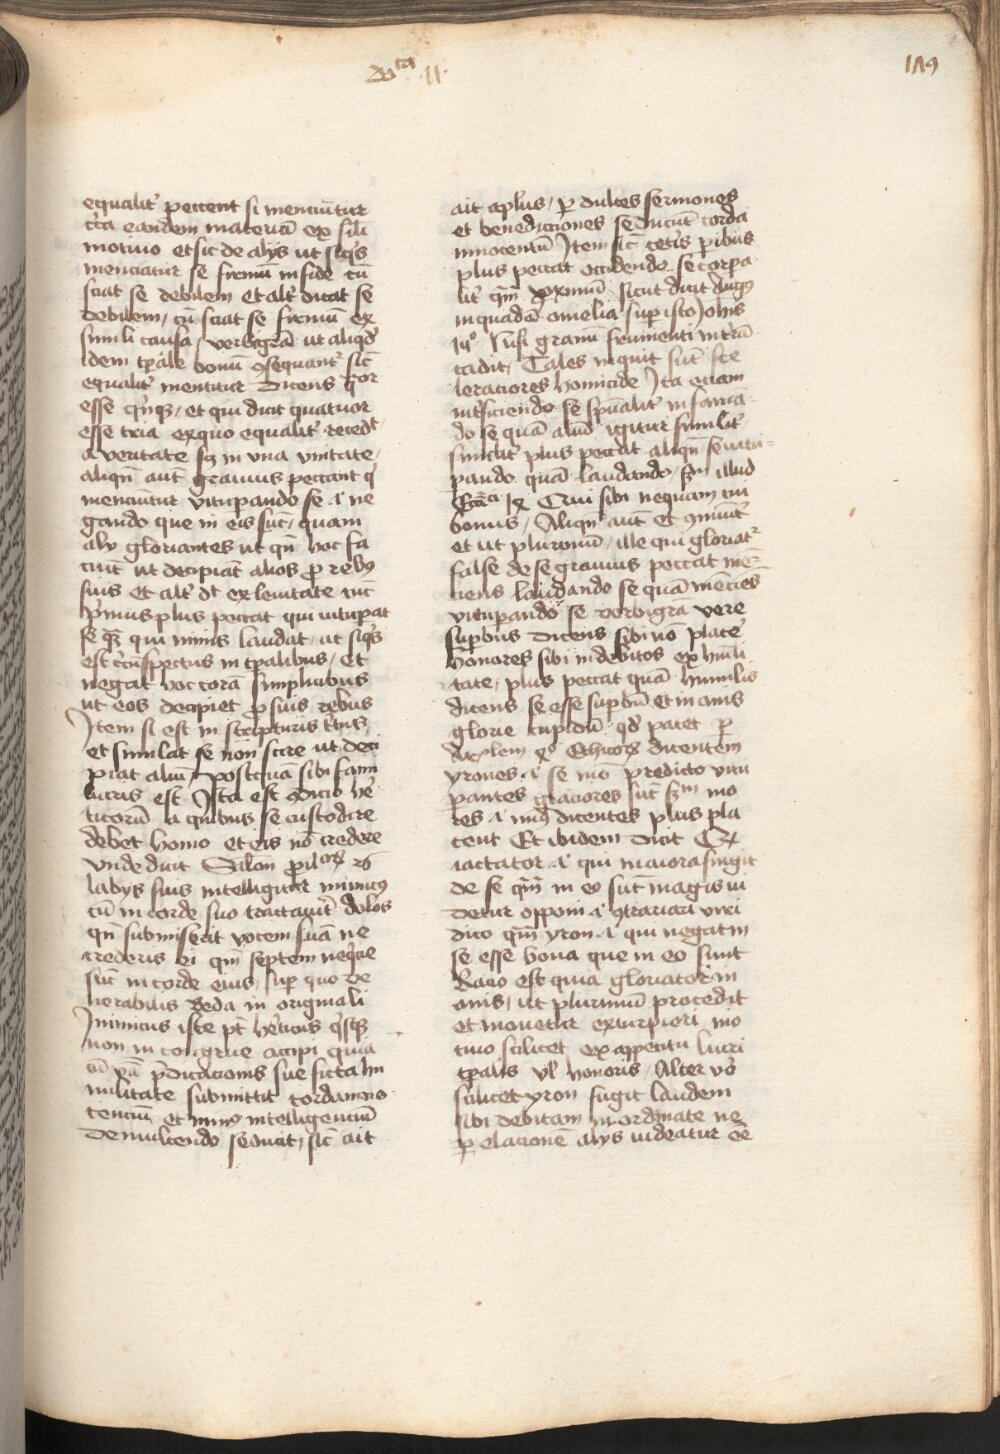 equalit' peccent si menciu͂tur
c'ca eandem materia͂ ex sil'i
motiuo et sic de alijs ut siq's
menciatur se firmu͂ in fide cu͂
sciat se debilem et alt' dicat se
debilem / cu͂ sciat se firmu͂ ex
simili causa / verbigra͂ ut aliqd'
idem tp͂ale bonu͂ ꝯsequant' sic͂
equalit' mentitur dicens qͣtor
esse q'nqꝫ / et qui dicit quatuor
esse tria ex quo equalit' recedt'
a veritate sꝫ in vna vnitate /
aliqn͂ aut͂ grauius peccant q'
menciu͂tur vitup͂ando se .i. ne
gando que in eis su͂t / quam
alij gloriantes ut qn͂ hoc fa
ciu͂t ut decipia͂t alios ꝓ rebꝫ
suis et alt' d͂t ex leuitate tu͂c
p'mus plus peccat qui uitup͂at
se qꝫ qui nimis laudat / ut siq's
est c'cu͂spectus in tp͂alibus / et
negat hoc cora͂ simplicibus
ut eos decipiet ꝓ suis rebus
Item si est in scripturis
et simulat se non scire ut deci
piat aliu͂ / postqua͂ sibi fami
liaris est Ista est ꝯdicio he͂
ticoru͂ a quibus se custodire
debet homo et eis no͂ credere
Vnde dicit Salon ꝓu͂
labijs suis intelligitur inimicꝯ
cu͂ in corde suo tractau͂it dolos
qn͂ submiserit vocem sua͂ ne
credideris ei qm͂ septem neq'cie
su͂t in corde eius / sup͂ quo ve
nerabilis Beda in originali
Inimicus iste p͂t he͂ticus q'sqꝫ
non in congrue accipi quia
predicacionis sue ficta hu
militate submittit corda inno
tenciu͂ et minꝯ intelligenciu͂
demulcendo seducit / sic͂ ait
ait ap͂lus / p͂ dulces sermones
et benedictiones seducu͂t corda
innocentu͂ Item sic͂ cet'is p͂ibus
plus peccat occidendo se corp͂a
lit' qm͂ ꝓximu͂ sicut dicit Augꝯ
in quada͂ omelia sup͂ isto Joh͂is
Nisi granu͂ frumenti in t'ra͂
cadit / Tales inquit su͂t sce
leraciores homicide Ita eciam
int'ficiendo se sp͂ualit' infama͂
do se qua͂ aliu͂ igitur similit'
simicit' plus peccat aliqn͂ se uitu=
pando qua͂ laudando / sm͂ illud
Ecc͂i Qui sibi nequam cui
bonus / Aliqn͂ aut͂ et ꝯmu͂it'
et ut plurimu͂ / ille qui gloriat'
false de se grauius peccat me͂=
ciens laudando se qua͂ me͂cies
vitup͂ando se verbigra͂ vere
sup͂bus dicens sibi no͂ place'
honores sibi indebitos ex humi
tate / plus peccat qua͂ humilis
dicens se esse sup͂bu͂ et inanis
glorie cupidu͂ qd' patet p͂
Ethicoꝝ dicentem
yrones .i. se mo͂ predicto vitu
pantes graciores su͂t sm͂ mo
res .i. minꝯ dicentes plus pla
cent Et ibidem dicit Qͥ
iactator .i. qui maiora fingit
de se qm͂ in eo su͂t magis ui
detur opponi .i. ꝯtrariari viri
dico qm͂ yron .i. qui negat in
se esse bona que in eo sunt
Racio est quia gloriator in
anis / ut plurimu͂ procedit
et mouetur ex turpiori mo
tiuo scilicet ex appetitu lucri
tp͂alis ul' honoris / Alter vo͂
scilicet yron fugit laudem
sibi debitam inordinate ne
p͂ elacione͂ alijs uideatur ee͂